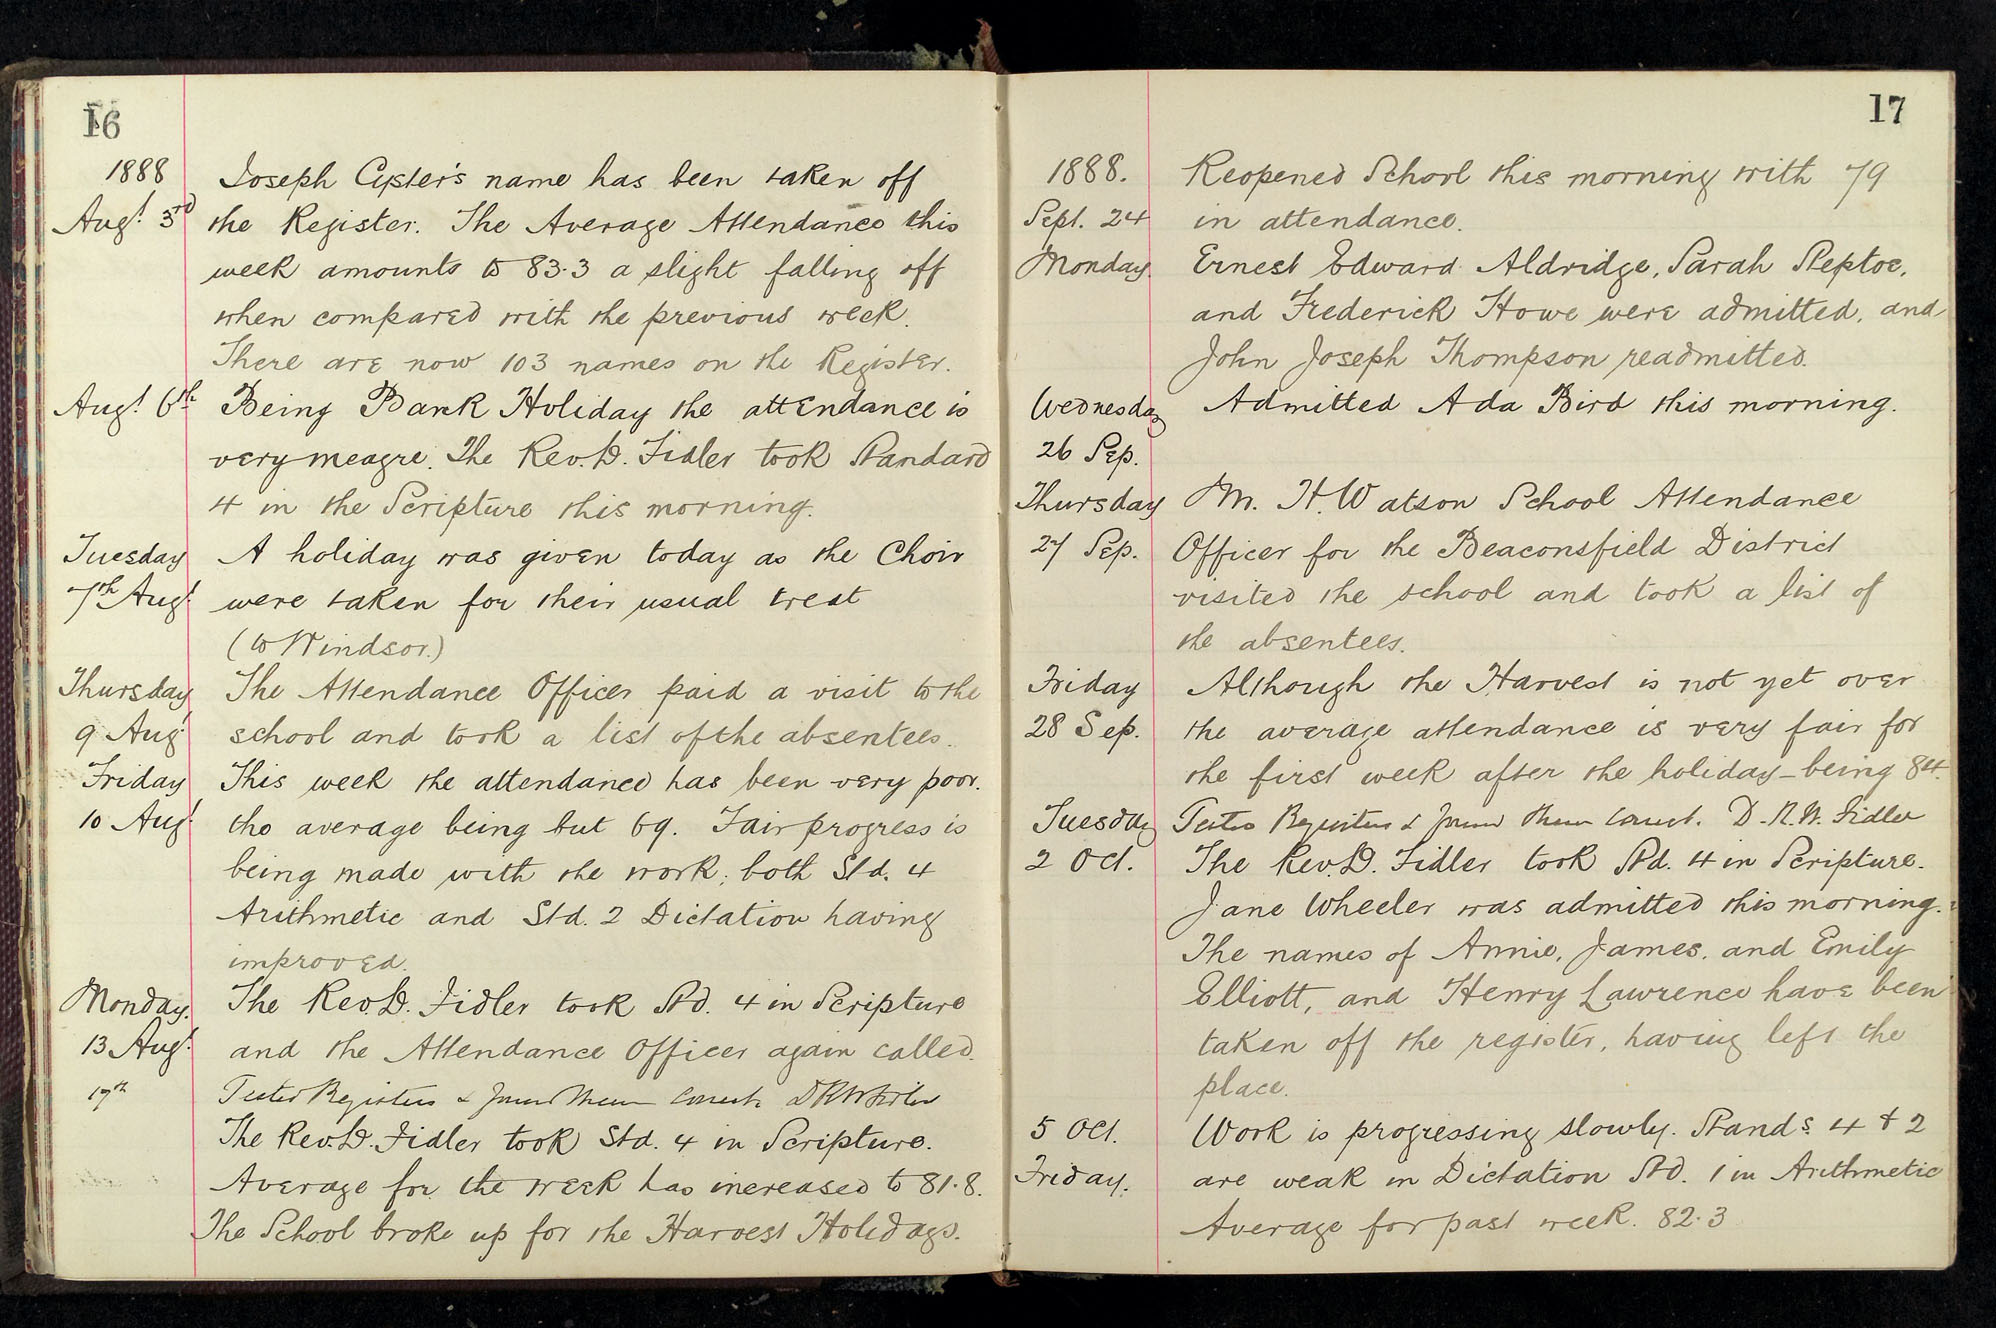 16
1888 Joseph Cyster's name has been taken off
Augt. 3rd the Register. The Average Attendance this
week amounts to 83.3 a slight falling off
when compared with the previous week.
There are now 103 names on the Register.
Augt. 6th Being Bank Holiday the attendance is
very meagre. The Rev. D. Fidler took Standard
4 in the Scripture this morning.
Tuesday A holiday was given today as the Choir
7th Augt. were taken for their usual treat
(to Windsor.)
Thursday The Attendance Officer paid a visit to the
9 Augt school and took a list of the absentees.
Friday This week the attendance has been very poor.
10 Augt the average being but 69. Fair progress is
being made with the work; both Std. 4
Arithmetic and Std. 2 Dictation having
improved.
Monday. The Rev. D. Fidler took Std. 4 in Scripture
13 Augt. and the Attendance Officer again called.
17th Tested Registers & found them correct. D R W Fidler
The Rev. D. Fidler took Std. 4 in Scripture.
Average for the week has increased to 81.8.
The School broke up for the Harvest Holidays.
17
1888. Reopened School this morning with 79
Sept. 24 in attendance.
Monday. Ernest Edward Aldridge, Sarah Steptoe,
and Frederick Howe were admitted, and
John Joseph Thompson readmitted.
Wednesday Admitted Ada Bird this morning.
26 Sep.
Thursday M. H. Watson School Attendance
27 Sep. Officer for the Beaconsfield District
visited the school and took a list of
the absentees.
Friday Although the Harvest is not yet over
28 Sep. the average attendance is very fair for
the first week after the holiday – being 84.
Tuesday Tested Registers & found them correct. D. R. W. Fidler
2 Oct. The Rev. D. Fidler took Std. 4 in Scripture.
Jane Wheeler was admitted this morning.
The names of Annie, James, and Emily
Elliott, and Henry Lawrence have been
taken off the register, having left the
place.
5 Oct. Work is progressing slowly. Stands. 4 & 2
Friday. are weak in Dictation Std. 1 in Arithmetic
Average for past week. 82.3